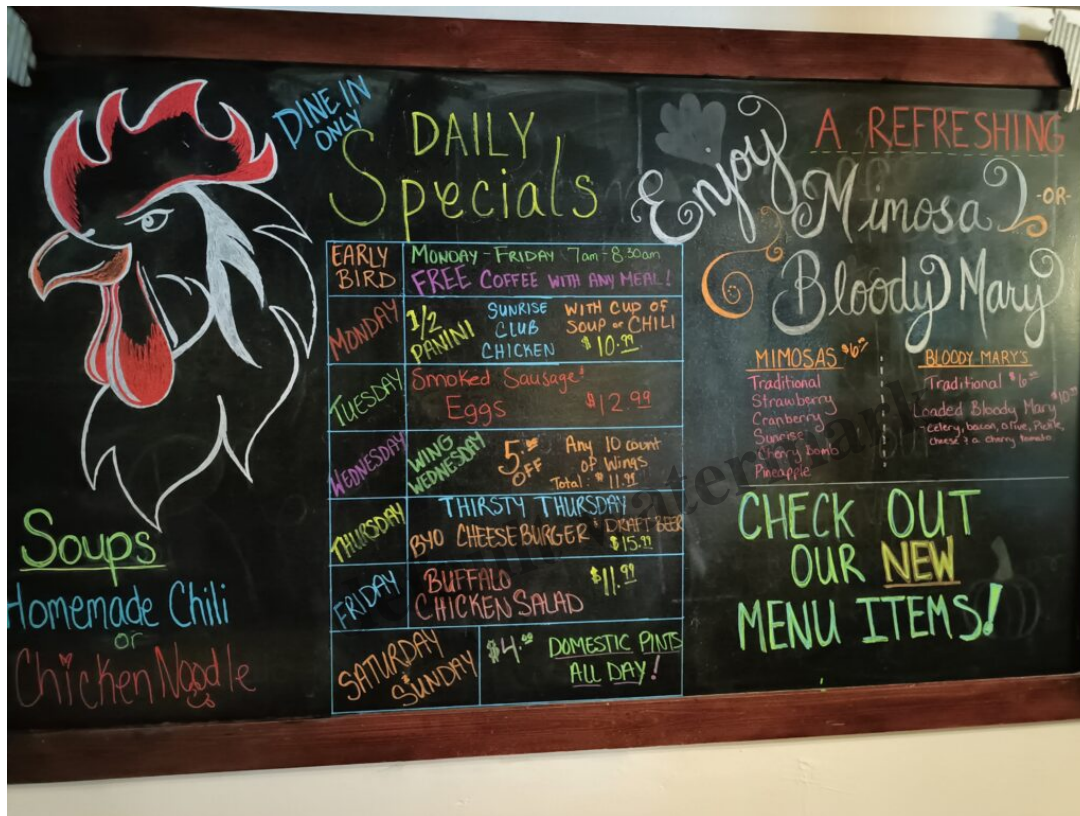 DINE IN
ONLY
DAILY
Specials
EARLY
BIRD
MONDAY - FRIDAY 7am - 8:30am
FREE COFFEE WITH ANY MEAL!
MONDAY
1/2
PANINI
SUNRISE
CLUB
CHICKEN
WITH CUP OF
SOUP or CHILI
$10.99
TUESDAY
Smoked Sausage &
Eggs
$12.99
WEDNESDAY
WING
WEDNESDAY
5.00
OFF
Any 10 count
of Wings
Total: $11.99
THURSDAY
THIRSTY THURSDAY
BYO CHEESEBURGER & DRAFT BEER
$15.99
FRIDAY
BUFFALO
CHICKEN SALAD
$11.99
SATURDAY
&
SUNDAY
$4.00
DOMESTIC PINTS
ALL DAY!
Soups
Homemade Chili
or
Chicken Noodle
Enjoy
A REFRESHING
Mimosa
-OR-
Bloody Mary
MIMOSAS $6
Traditional
Strawberry
Cranberry
Sunrise
Cherry bomb
Pineapple
BLOODY MARY'S
Traditional $6
Loaded Bloody Mary $10
-celery, bacon, olive, Pickle,
cheese & a cherry tomato
CHECK OUT
OUR NEW
MENU ITEMS!